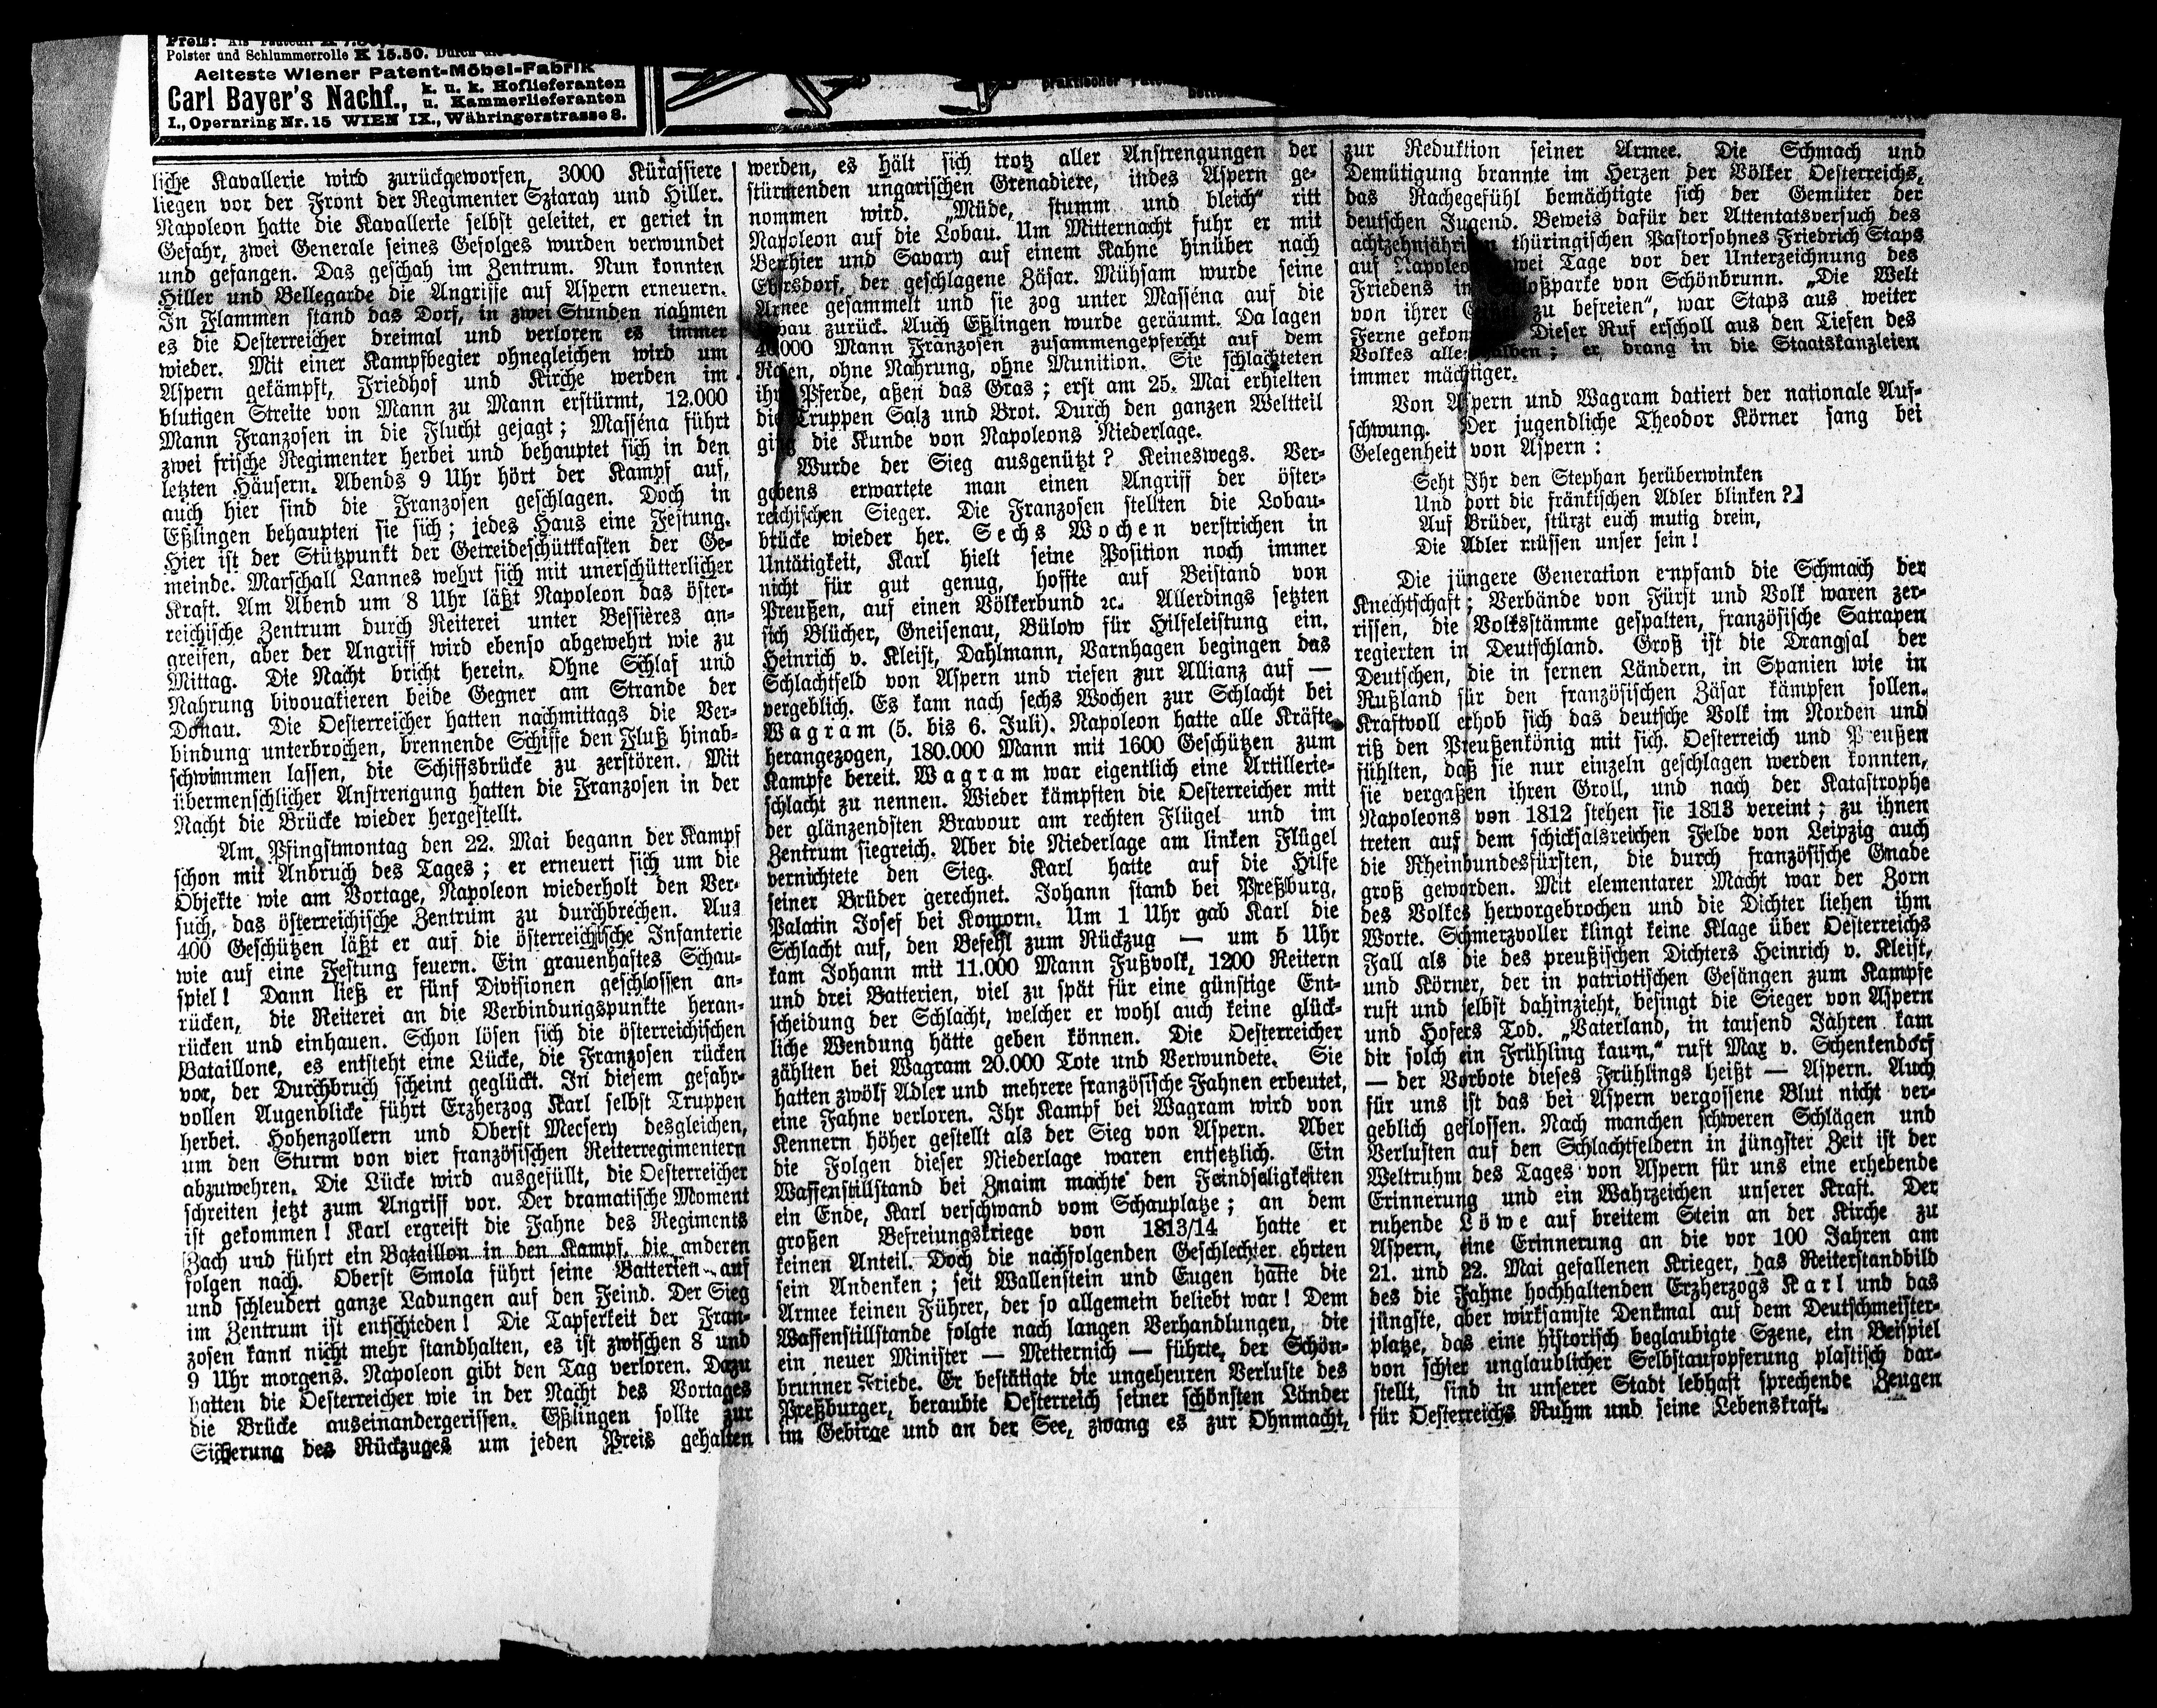 Polster und Schlummerrolle K 15.50.
Aelteste Wiener Patent-Möbel-Fabrik
Carl Bayer's Nachf., k. u. k. Hoflieferanten
u. Kammerlieferanten
I., Opernring Nr. 15 WIEN IX., Währingerstrasse 8.
praktischer
liche Kavallerie wird zurückgeworfen, 3000 Kürassiere
liegen vor der Front der Regimenter Sztaray und Hiller.
Napoleon hatte die Kavallerie selbst geleitet, er geriet in
Gefahr, zwei Generale seines Gefolges wurden verwundet
und gefangen. Das geschah im Zentrum. Nun konnten
Hiller und Bellegarde die Angriffe auf Aspern erneuern.
In Flammen stand das Dorf, in zwei Stunden nahmen
es die Oesterreicher dreimal und verloren es immer
wieder. Mit einer Kampfbegier ohnegleichen wird um
Aspern gekämpft, Friedhof und Kirche werden im
blutigen Streite von Mann zu Mann erstürmt, 12.000
Mann Franzosen in die Flucht gejagt; Masséna führt
zwei frische Regimenter herbei und behauptet sich in den
letzten Häusern. Abends 9 Uhr hört der Kampf auf,
auch hier sind die Franzosen geschlagen. Doch in
Eßlingen behaupten sie sich; jedes Haus eine Festung.
Hier ist der Stützpunkt der Getreideschüttkasten der Ge-
meinde. Marschall Lannes wehrt sich mit unerschütterlicher
Kraft. Am Abend um 8 Uhr läßt Napoleon das öster-
reichische Zentrum durch Reiterei unter Bessières an-
greifen, aber der Angriff wird ebenso abgewehrt wie zu
Mittag. Die Nacht bricht herein. Ohne Schlaf und
Nahrung bivouakieren beide Gegner am Strande der
Donau. Die Oesterreicher hatten nachmittags die Ver-
bindung unterbrochen, brennende Schiffe den Fluß hinab-
schwimmen lassen, die Schiffsbrücke zu zerstören. Mit
übermenschlicher Anstrengung hatten die Franzosen in der
Nacht die Brücke wieder hergestellt.
Am Pfingstmontag den 22. Mai begann der Kampf
schon mit Anbruch des Tages; er erneuert sich um die
Objekte wie am Vortage, Napoleon wiederholt den Ver-
such, das österreichische Zentrum zu durchbrechen. Aus
400 Geschützen läßt er auf die österreichische Infanterie
wie auf eine Festung feuern. Ein grauenhaftes Schau-
spiel! Dann ließ er fünf Divisionen geschlossen an-
rücken, die Reiterei an die Verbindungspunkte heran-
rücken und einhauen. Schon lösen sich die österreichischen
Bataillone, es entsteht eine Lücke, die Franzosen rücken
vor, der Durchbruch scheint geglückt. In diesem gefahr-
vollen Augenblicke führt Erzherzog Karl selbst Truppen
herbei. Hohenzollern und Oberst Mecsery desgleichen,
um den Sturm von vier französischen Reiterregimentern
abzuwehren. Die Lücke wird ausgefüllt, die Oesterreicher
schreiten jetzt zum Angriff vor. Der dramatische Moment
ist gekommen! Karl ergreift die Fahne des Regiments
Zach und führt ein Bataillon in den Kampf, die anderen
folgen nach. Oberst Smola führt seine Batterien auf
und schleudert ganze Ladungen auf den Feind. Der Sieg
im Zentrum ist entschieden! Die Tapferkeit der Fran-
zosen kann nicht mehr standhalten, es ist zwischen 8 und
9 Uhr morgens. Napoleon gibt den Tag verloren. Dazu
hatten die Oesterreicher wie in der Nacht des Vortages
die Brücke auseinandergerissen. Eßlingen sollte zur
Sicherung des Rückzuges um jeden Preis gehalten
werden, es hält sich trotz aller Anstrengungen der
stürmenden ungarischen Grenadiere, indes Aspern ge-
nommen wird. „Müde, stumm und bleich" ritt
Napoleon auf die Lobau. Um Mitternacht fuhr er mit
Berthier und Savary auf einem Kahne hinüber nach
Ebersdorf, der geschlagene Zäsar. Mühsam wurde seine
Armee gesammelt und sie zog unter Masséna auf die
zurück. Auch Eßlingen wurde geräumt. Da lagen
40.000 Mann Franzosen zusammengepfercht auf dem
Rasen, ohne Nahrung, ohne Munition. Sie schlachteten
ihre Pferde, aßen das Gras; erst am 25. Mai erhielten
die Truppen Salz und Brot. Durch den ganzen Weltteil
ging die Kunde von Napoleons Niederlage.
Wurde der Sieg ausgenützt? Keineswegs. Ver-
gebens erwartete man einen Angriff der öster-
reichischen Sieger. Die Franzosen stellten die Lobau-
brücke wieder her. Sechs Wochen verstrichen in
Untätigkeit, Karl hielt seine Position noch immer
nicht für gut genug, hoffte auf Beistand von
Preußen, auf einen Völkerbund ꝛc. Allerdings setzten
sich Blücher, Gneisenau, Bülow für Hilfeleistung ein.
Heinrich v. Kleist, Dahlmann, Varnhagen begingen das
Schlachtfeld von Aspern und riefen zur Allianz auf —
vergeblich. Es kam nach sechs Wochen zur Schlacht bei
Wagram (5. bis 6. Juli). Napoleon hatte alle Kräfte
herangezogen, 180.000 Mann mit 1600 Geschützen zum
Kampfe bereit. Wagram war eigentlich eine Artillerie-
schlacht zu nennen. Wieder kämpften die Oesterreicher mit
der glänzendsten Bravour am rechten Flügel und im
Zentrum siegreich. Aber die Niederlage am linken Flügel
vernichtete den Sieg. Karl hatte auf die Hilfe
seiner Brüder gerechnet. Johann stand bei Preßburg,
Palatin Josef bei Komorn. Um 1 Uhr gab Karl die
Schlacht auf, den Befehl zum Rückzug — um 5 Uhr
kam Johann mit 11.000 Mann Fußvolk, 1200 Reitern
und drei Batterien, viel zu spät für eine günstige Ent-
scheidung der Schlacht, welcher er wohl auch keine glück-
liche Wendung hätte geben können. Die Oesterreicher
zählten bei Wagram 20.000 Tote und Verwundete. Sie
hatten zwölf Adler und mehrere französische Fahnen erbeutet,
eine Fahne verloren. Ihr Kampf bei Wagram wird von
Kennern höher gestellt als der Sieg von Aspern. Aber
die Folgen dieser Niederlage waren entsetzlich. Ein
Waffenstillstand bei Znaim machte den Feindseligkeiten
ein Ende, Karl verschwand vom Schauplatze; an dem
großen Befreiungskriege von 1813/14 hatte er
keinen Anteil. Doch die nachfolgenden Geschlechter ehrten
sein Andenken; seit Wallenstein und Eugen hatte die
Armee keinen Führer, der so allgemein beliebt war! Dem
Waffenstillstande folgte nach langen Verhandlungen, die
ein neuer Minister — Metternich — führte, der Schön-
brunner Friede. Er bestätigte die ungeheuren Verluste des
Preßburger, beraubte Oesterreich seiner schönsten Länder
im Gebirge und an der See, zwang es zur Ohnmacht,
zur Reduktion seiner Armee. Die Schmach und
Demütigung brannte im Herzen der Völker Oesterreichs,
das Rachegefühl bemächtigte sich der Gemüter der
deutschen Jugend. Beweis dafür der Attentatsversuch des
achtzehnjährigen thüringischen Pastorsohnes Friedrich Staps
auf Napoleon zwei Tage vor der Unterzeichnung des
Friedens im Schloßparke von Schönbrunn. „Die Welt
von ihrer zu befreien", war Staps aus weiter
Ferne gekommen. Dieser Ruf erscholl aus den Tiefen des
Volkes allenthalben; er drang in die Staatskanzleien
immer mächtiger.
Von Aspern und Wagram datiert der nationale Auf-
schwung. Der jugendliche Theodor Körner sang bei
Gelegenheit von Aspern:
Seht Ihr den Stephan herüberwinken
Und dort die fränkischen Adler blinken?
Auf Brüder, stürzt euch mutig drein,
Die Adler müssen unser sein!
Die jüngere Generation empfand die Schmach der
Knechtschaft; Verbände von Fürst und Volk waren zer-
rissen, die Volksstämme gespalten, französische Satrapen
regierten in Deutschland. Groß ist die Drangsal der
Deutschen, die in fernen Ländern, in Spanien wie in
Rußland für den französischen Zäsar kämpfen sollen.
Kraftvoll erhob sich das deutsche Volk im Norden und
riß den Preußenkönig mit sich. Oesterreich und Preußen
fühlten, daß sie nur einzeln geschlagen werden konnten,
sie vergaßen ihren Groll, und nach der Katastrophe
Napoleons von 1812 stehen sie 1813 vereint; zu ihnen
treten auf dem schicksalsreichen Felde von Leipzig auch
die Rheinbundesfürsten, die durch französische Gnade
groß geworden. Mit elementarer Macht war der Zorn
des Volkes hervorgebrochen und die Dichter liehen ihm
Worte. Schmerzvoller klingt keine Klage über Oesterreichs
Fall als die des preußischen Dichters Heinrich v. Kleist,
und Körner, der in patriotischen Gesängen zum Kampfe
ruft und selbst dahinzieht, besingt die Sieger von Aspern
und Hofers Tod. „Vaterland, in tausend Jahren kam
dir solch ein Frühling kaum," ruft Max v. Schenkendorf
— der Vorbote dieses Frühlings heißt — Aspern. Auch
für uns ist das bei Aspern vergossene Blut nicht ver-
geblich geflossen. Nach manchen schweren Schlägen und
Verlusten auf den Schlachtfeldern in jüngster Zeit ist der
Weltruhm des Tages von Aspern für uns eine erhebende
Erinnerung und ein Wahrzeichen unserer Kraft. Der
ruhende Löwe auf breitem Stein an der Kirche zu
Aspern, eine Erinnerung an die vor 100 Jahren am
21. und 22. Mai gefallenen Krieger, das Reiterstandbild
des die Fahne hochhaltenden Erzherzogs Karl und das
jüngste, aber wirksamste Denkmal auf dem Deutschmeister-
platze, das eine historisch beglaubigte Szene, ein Beispiel
von schier unglaublicher Selbstaufopferung plastisch dar-
stellt, sind in unserer Stadt lebhaft sprechende Zeugen
für Oesterreichs Ruhm und seine Lebenskraft.